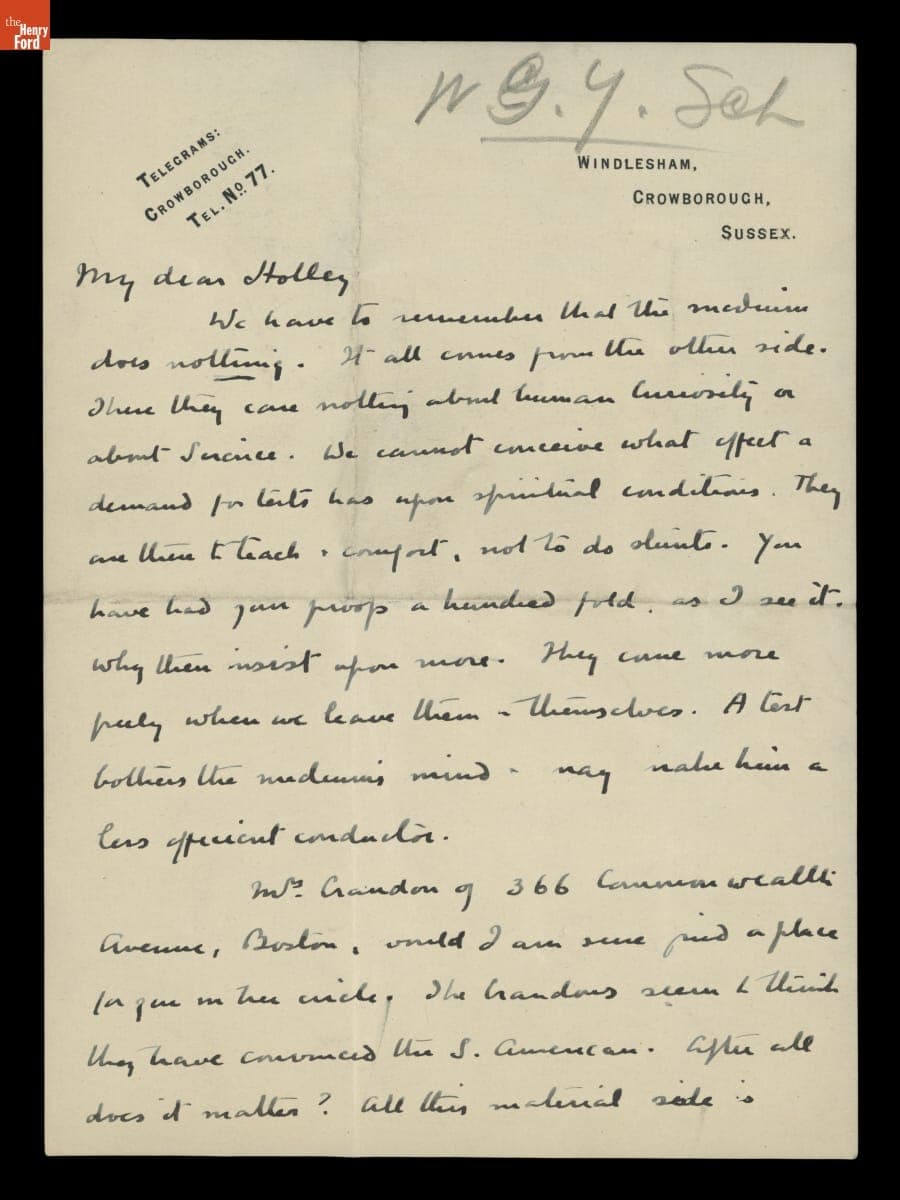 the
Henry
Ford
W.G.Y. Sch
TELEGRAMS:
CROWBOROUGH.
TEL. No. 77.
WINDLESHAM,
CROWBOROUGH,
SUSSEX.
My dear Holley
We have to remember that the medium
does nothing. It all comes from the other side.
There they care nothing about human curiosity or
about Science. We cannot conceive what effect a
demand for tests has upon spiritual conditions. They
are there to teach & comfort, not to do stunts. You
have had your proofs a hundred fold, as I see it.
Why then insist upon more. They come more
freely when we leave them to themselves. A test
bothers the medium's mind & may make him a
less efficient conductor.
Mrs. Crandon of 366 Commonwealth
Avenue, Boston, would I am sure find a place
for you in her circle. The Crandons seem to think
they have convinced the S. American. After all
does it matter? All this material side is